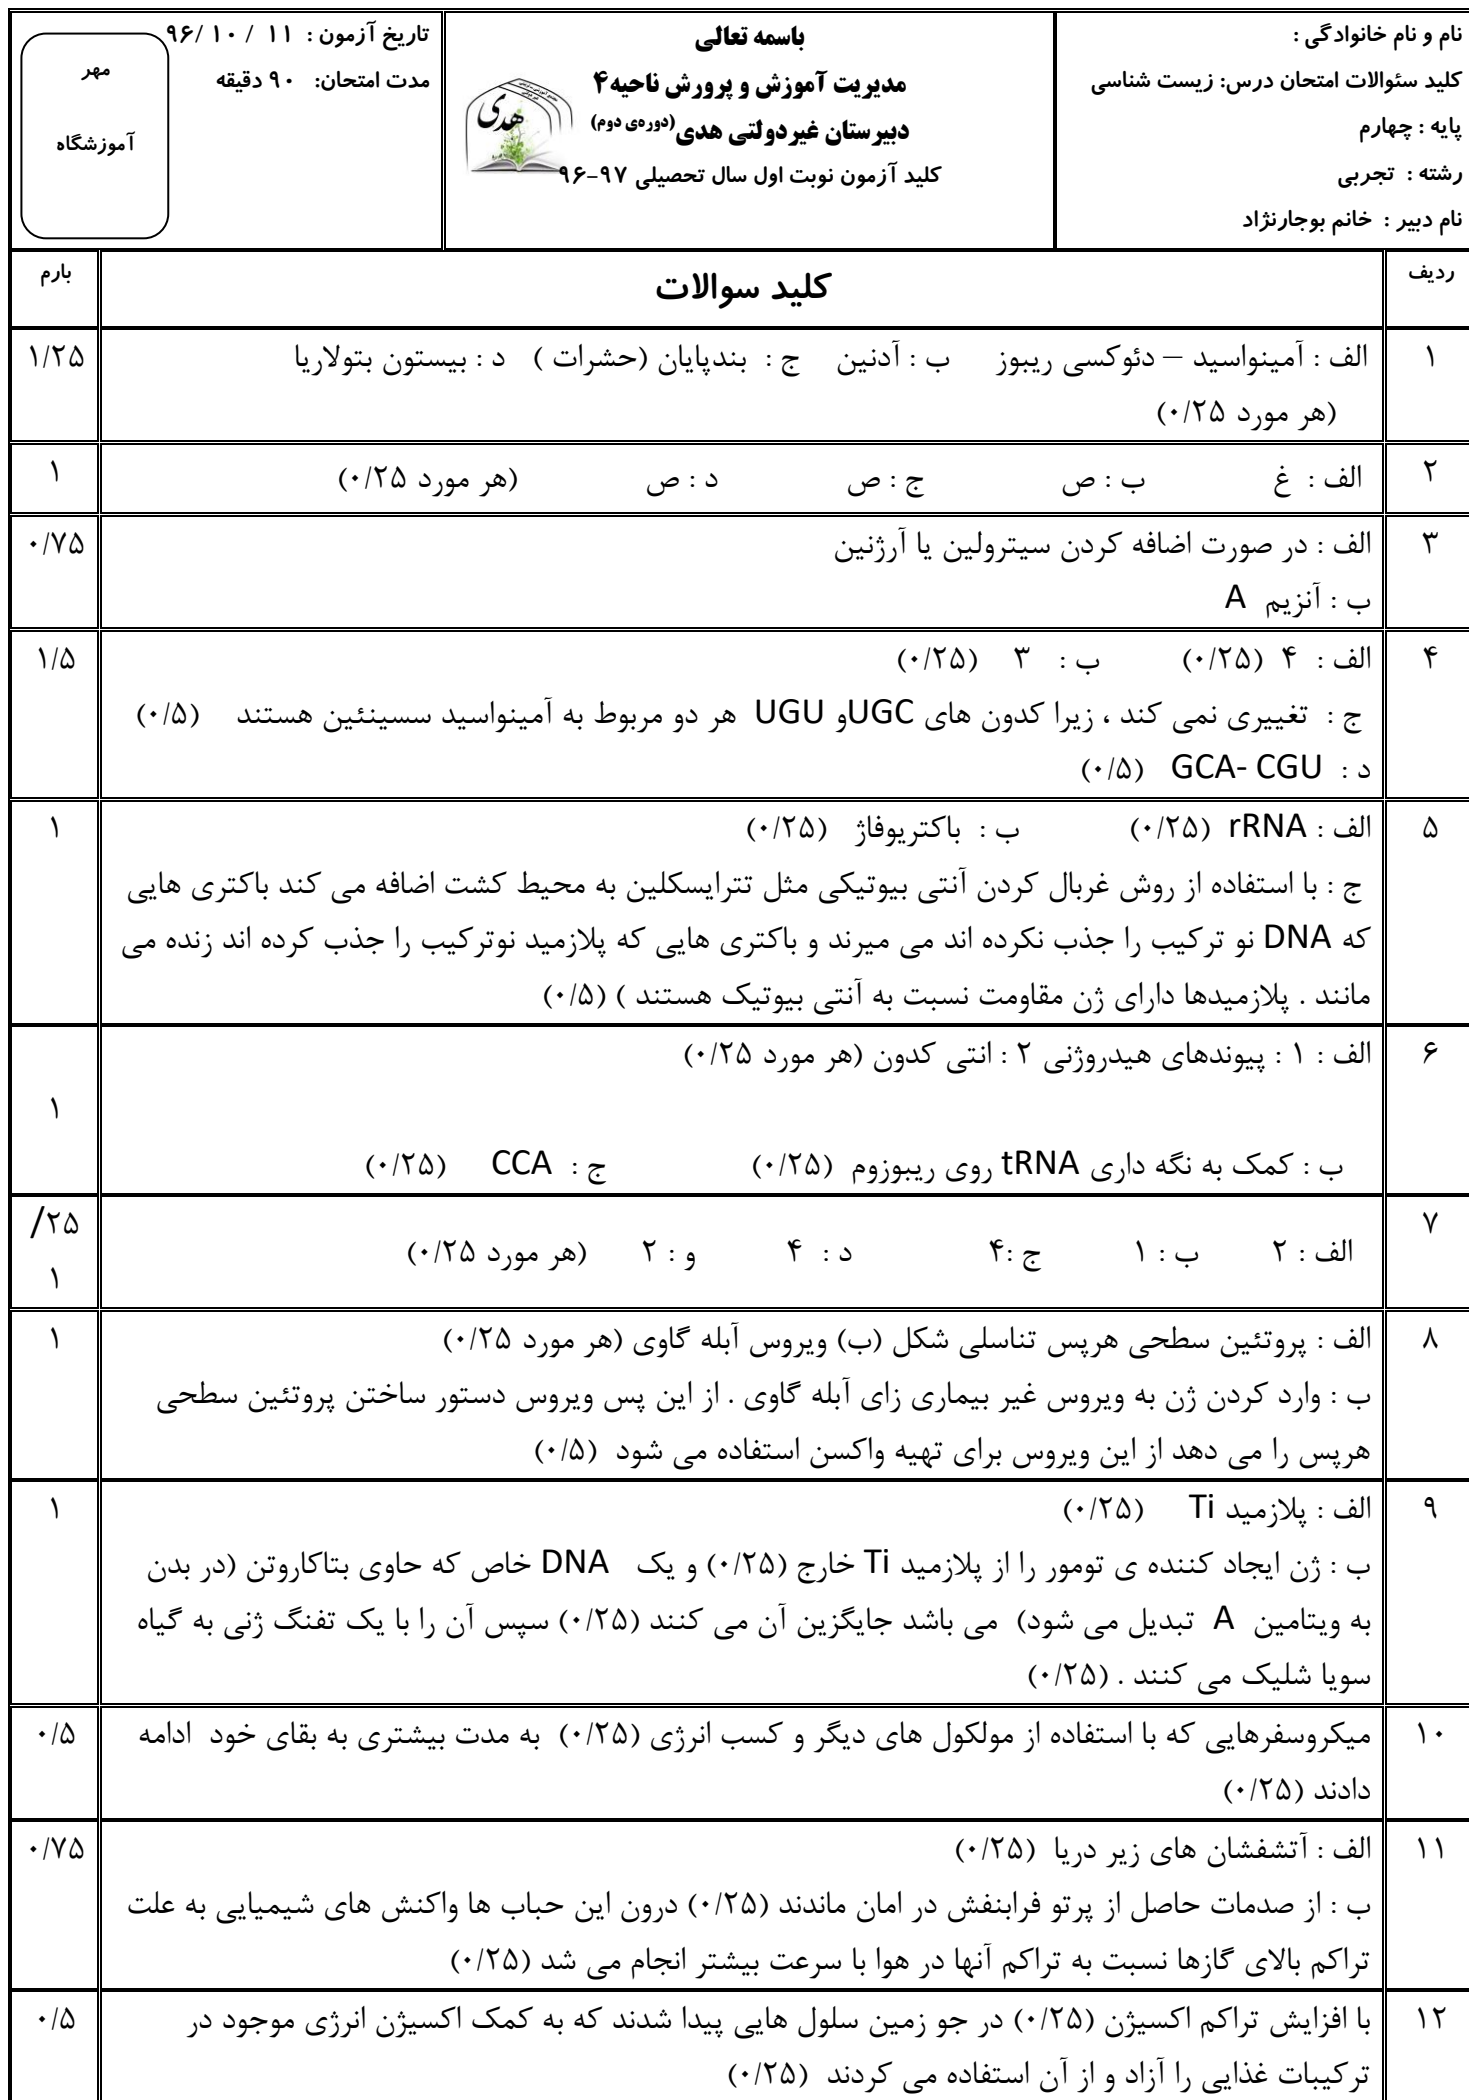 نام و نام خانوادگی :
کلید سئوالات امتحان درس: زیست شناسی
پایه : چهارم
رشته : تجربی
نام دبیر : خانم بوجارنژاد
باسمه تعالی
مدیریت آموزش و پرورش ناحیه۴
دبیرستان غیردولتی هدی(دوره‌ی دوم)
کلید آزمون نوبت اول سال تحصیلی ۹۷-۹۶
هدی
تاریخ آزمون : ۱۱ / ۱۰ /۹۶
مدت امتحان: ۹۰ دقیقه
مهر
آموزشگاه
ردیف
کلید سوالات
بارم
۱
الف : آمینواسید – دئوکسی ریبوز ب : آدنین ج : بندپایان (حشرات ) د : بیستون بتولاریا
(هر مورد ۰/۲۵)
۱/۲۵
۲
الف : غ ب : ص ج : ص د : ص (هر مورد ۰/۲۵)
۱
۳
الف : در صورت اضافه کردن سیترولین یا آرژنین
ب : آنزیم A
۰/۷۵
۴
الف : ۴ (۰/۲۵) ب : ۳ (۰/۲۵)
ج : تغییری نمی کند ، زیرا کدون های UGCو UGU هر دو مربوط به آمینواسید سسینئین هستند (۰/۵)
د : GCA- CGU (۰/۵)
۱/۵
۵
الف : rRNA (۰/۲۵) ب : باکتریوفاژ (۰/۲۵)
ج : با استفاده از روش غربال کردن آنتی بیوتیکی مثل تترایسکلین به محیط کشت اضافه می کند باکتری هایی
که DNA نو ترکیب را جذب نکرده اند می میرند و باکتری هایی که پلازمید نوترکیب را جذب کرده اند زنده می
مانند . پلازمیدها دارای ژن مقاومت نسبت به آنتی بیوتیک هستند ) (۰/۵)
۱
۶
الف : ۱ : پیوندهای هیدروژنی ۲ : انتی کدون (هر مورد ۰/۲۵)
ب : کمک به نگه داری tRNA روی ریبوزوم (۰/۲۵) ج : CCA (۰/۲۵)
۱
۷
الف : ۲ ب : ۱ ج :۴ د : ۴ و : ۲ (هر مورد ۰/۲۵)
/۲۵
۱
۸
الف : پروتئین سطحی هرپس تناسلی شکل (ب) ویروس آبله گاوی (هر مورد ۰/۲۵)
ب : وارد کردن ژن به ویروس غیر بیماری زای آبله گاوی . از این پس ویروس دستور ساختن پروتئین سطحی
هرپس را می دهد از این ویروس برای تهیه واکسن استفاده می شود (۰/۵)
۱
۹
الف : پلازمید Ti (۰/۲۵)
ب : ژن ایجاد کننده ی تومور را از پلازمید Ti خارج (۰/۲۵) و یک DNA خاص که حاوی بتاکاروتن (در بدن
به ویتامین A تبدیل می شود) می باشد جایگزین آن می کنند (۰/۲۵) سپس آن را با یک تفنگ ژنی به گیاه
سویا شلیک می کنند . (۰/۲۵)
۱
۱۰
میکروسفرهایی که با استفاده از مولکول های دیگر و کسب انرژی (۰/۲۵) به مدت بیشتری به بقای خود ادامه
دادند (۰/۲۵)
۰/۵
۱۱
الف : آتشفشان های زیر دریا (۰/۲۵)
ب : از صدمات حاصل از پرتو فرابنفش در امان ماندند (۰/۲۵) درون این حباب ها واکنش های شیمیایی به علت
تراکم بالای گازها نسبت به تراکم آنها در هوا با سرعت بیشتر انجام می شد (۰/۲۵)
۰/۷۵
۱۲
با افزایش تراکم اکسیژن (۰/۲۵) در جو زمین سلول هایی پیدا شدند که به کمک اکسیژن انرژی موجود در
ترکیبات غذایی را آزاد و از آن استفاده می کردند (۰/۲۵)
۰/۵